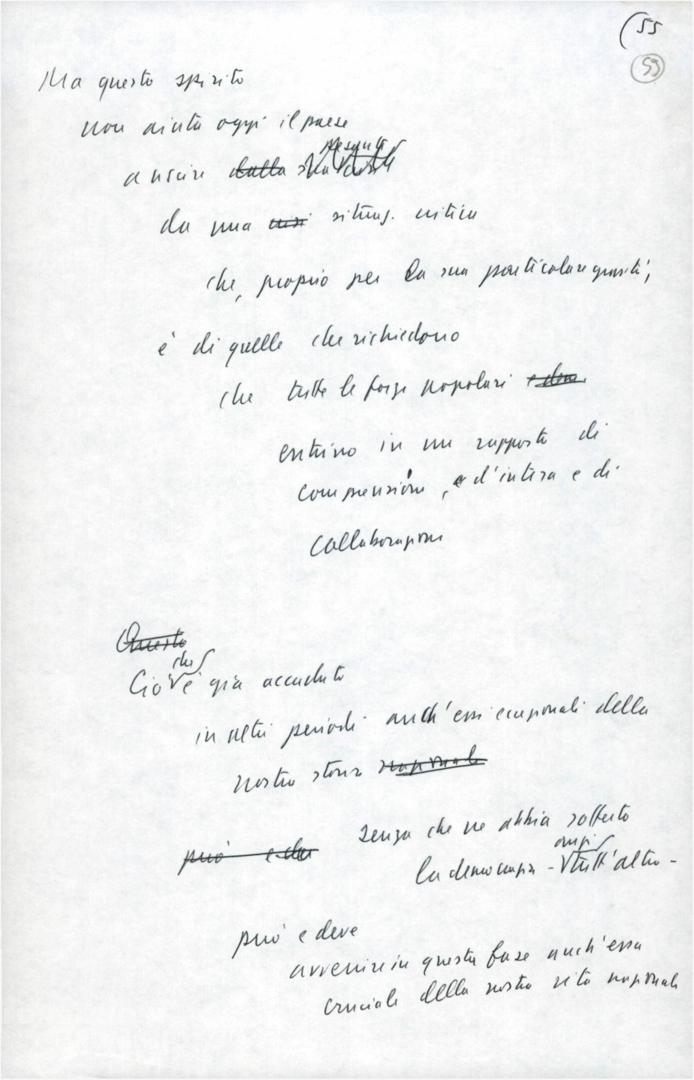 55
59
Ma questo spirito
non aiuta oggi il paese
a uscire dalla sua
da una crisi situaz. critica
che, proprio per la sua particolare gravità,
è di quelle che richiedono
che tutte le forze popolari e dem.
entrino in un rapporto di
comprensione, e d'intesa e di
collaborazione
Questo
che
Ciò è già accaduto
in altri periodi anch'essi eccezionali della
nostra storia nazionale
senza che ne abbia sofferto
può e deve
anzi
la democrazia - tutt'altro -
può e deve
avvenire in questa fase anch'essa
cruciale della nostra vita nazionale